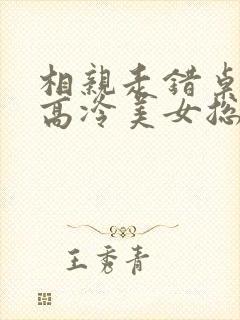 相親走錯桌
高冷美女總
王秀青